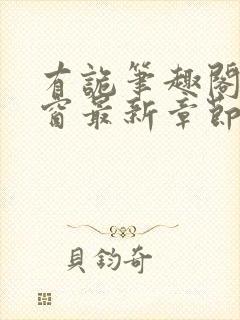 有詭筆趣閣
窗最新章節
貝鈞奇